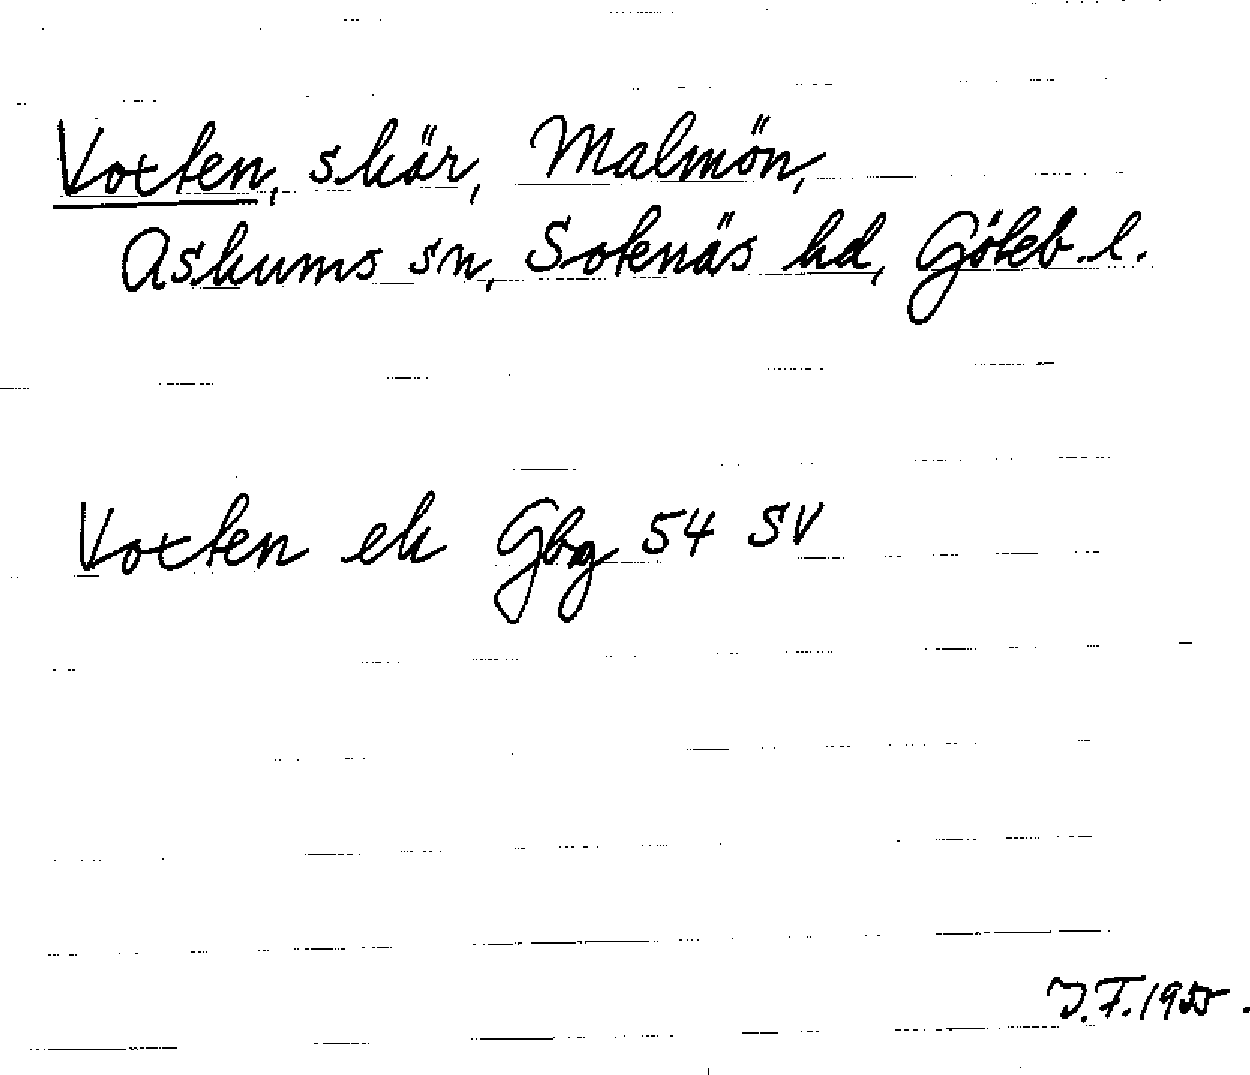 Voxten, skär, Malmön,
Askums sn, Sotenäs hd, Göteb. l.
Voxten ek Gbg 54 SV
J.F. 1955.